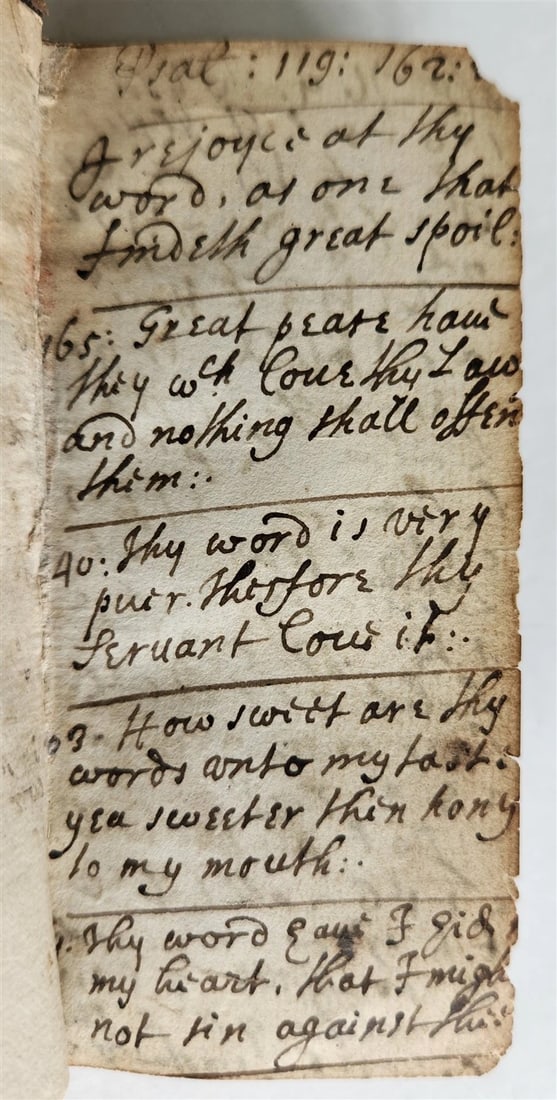 Psal: 119: 162:
I rejoyce at thy
word, as one that
findeth great spoil:
165: Great peace haue
they wch loue thy Law
and nothing shall offen
them:.
40: Thy word is very
puer. therfore thy
servant loue it:.
03. How sweet are thy
words vnto my tast:
yea sweeter then hony
to my mouth:.
: Thy word haue I hid
my heart, that I migh
not sin against thee: